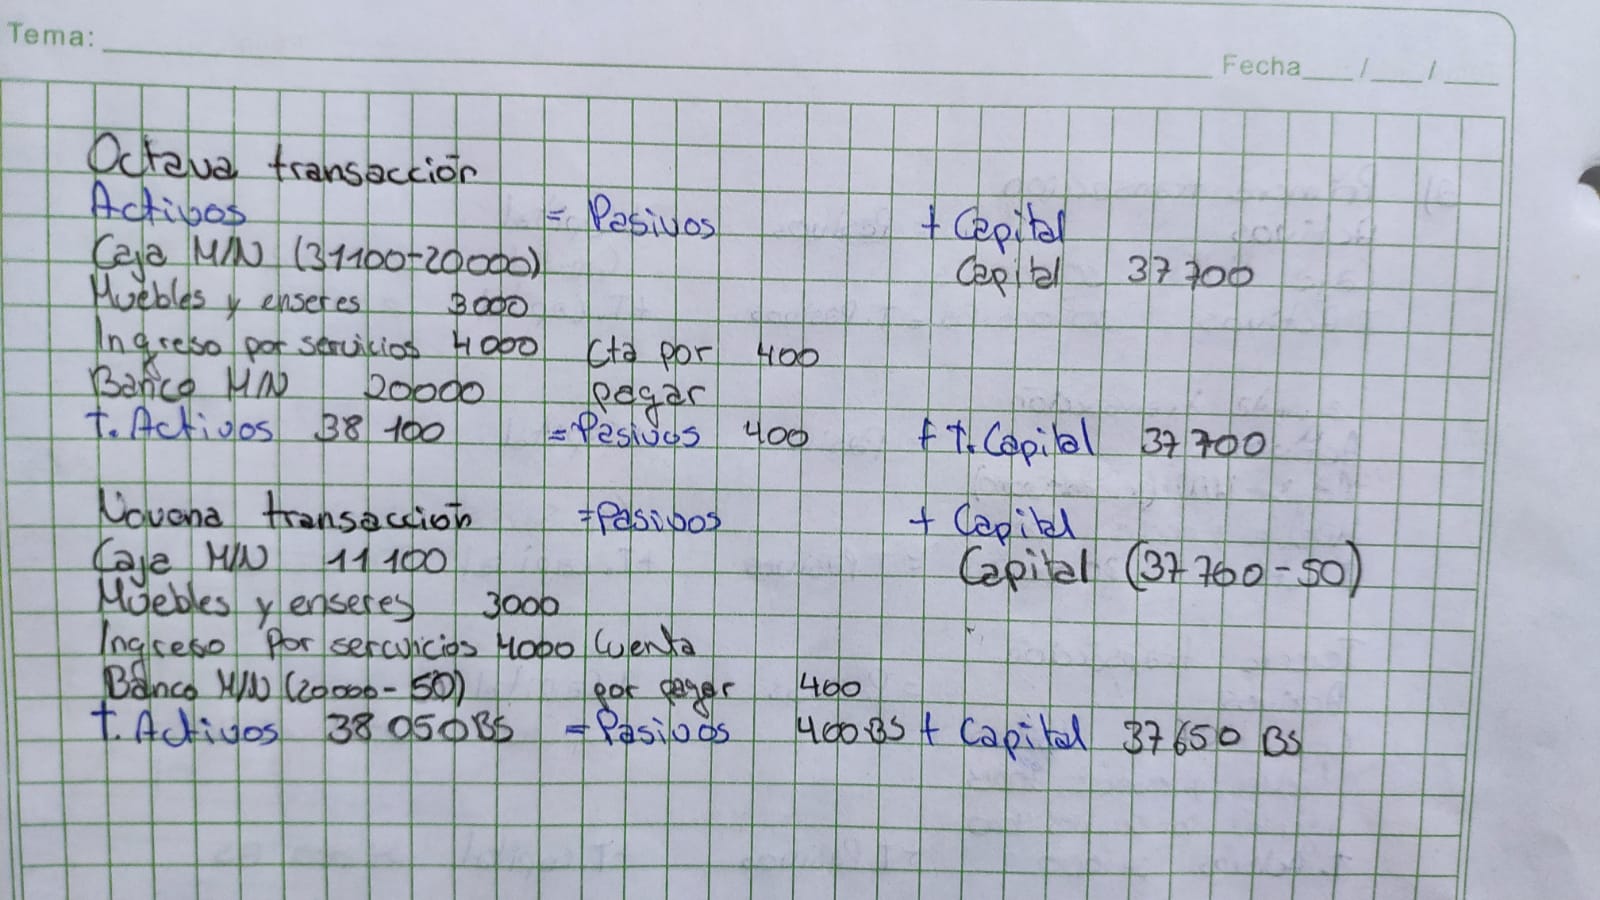 Tema:
Fecha / /
Octava transacción
Activos = Pasivos + Capital
Caja M/N (31100-20000) Capital 37 700
Muebles y enseres 3000
Ingreso por servicios 4000 Cta por 400
Banco M/N 20000 pagar
T. Activos 38 100 = Pasivos 400 + T. Capital 37 700
Novena transacción = Pasivos + Capital
Caja M/N 11 100 Capital (37 760-50)
Muebles y enseres 3000
Ingreso por servicios 4000 Cuenta
Banco M/N (20000-50) por pagar 400
T. Activos 38 050 BS = Pasivos 400 BS + Capital 37 650 BS